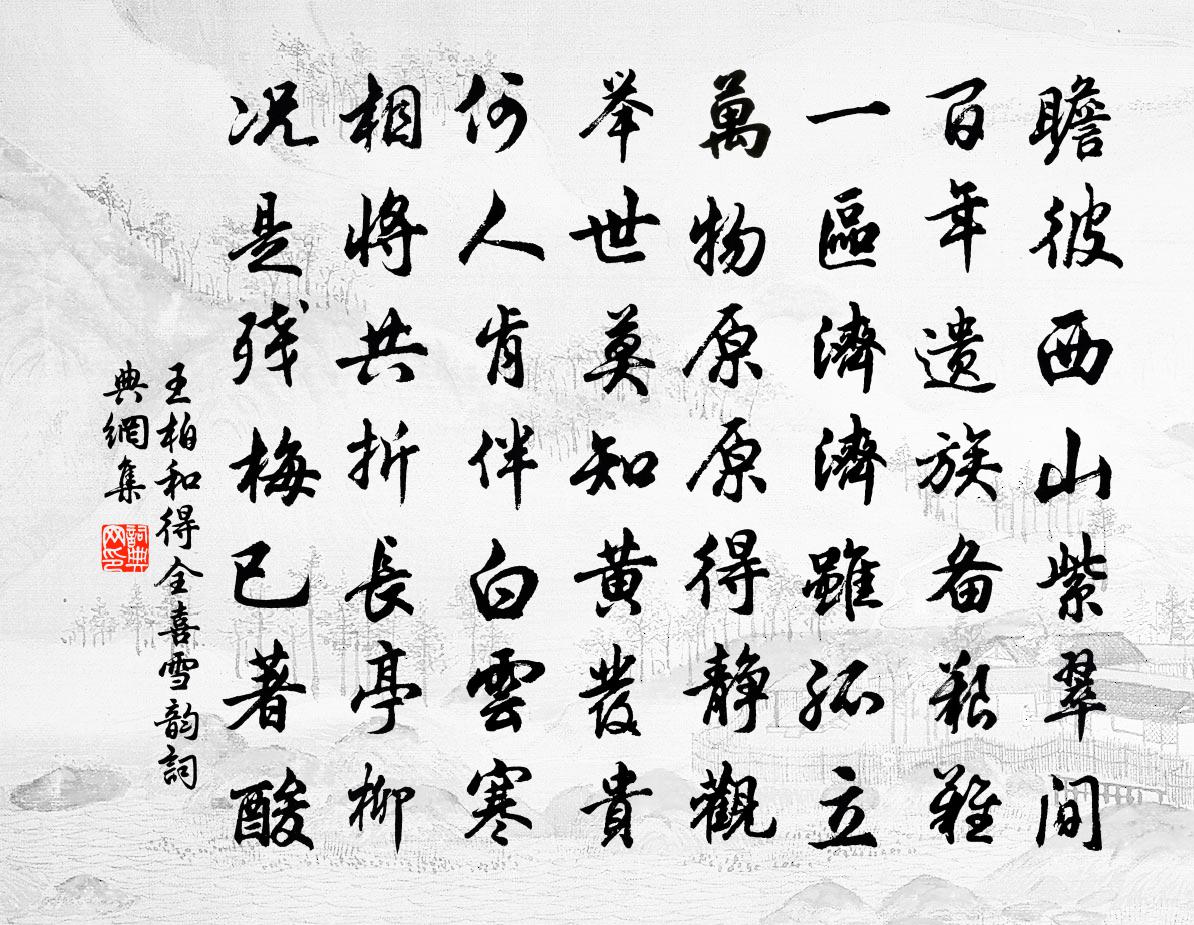 瞻彼西山紫翠间
百年遗族备艰难
一區濟濟雖孤立
萬物原原得静觀
举世莫知黄发貴
何人肯伴白雲寒
相將共折長亭柳
况是残梅已著酸
王柏和得全喜雪韵詞
典網集
詞典
网印